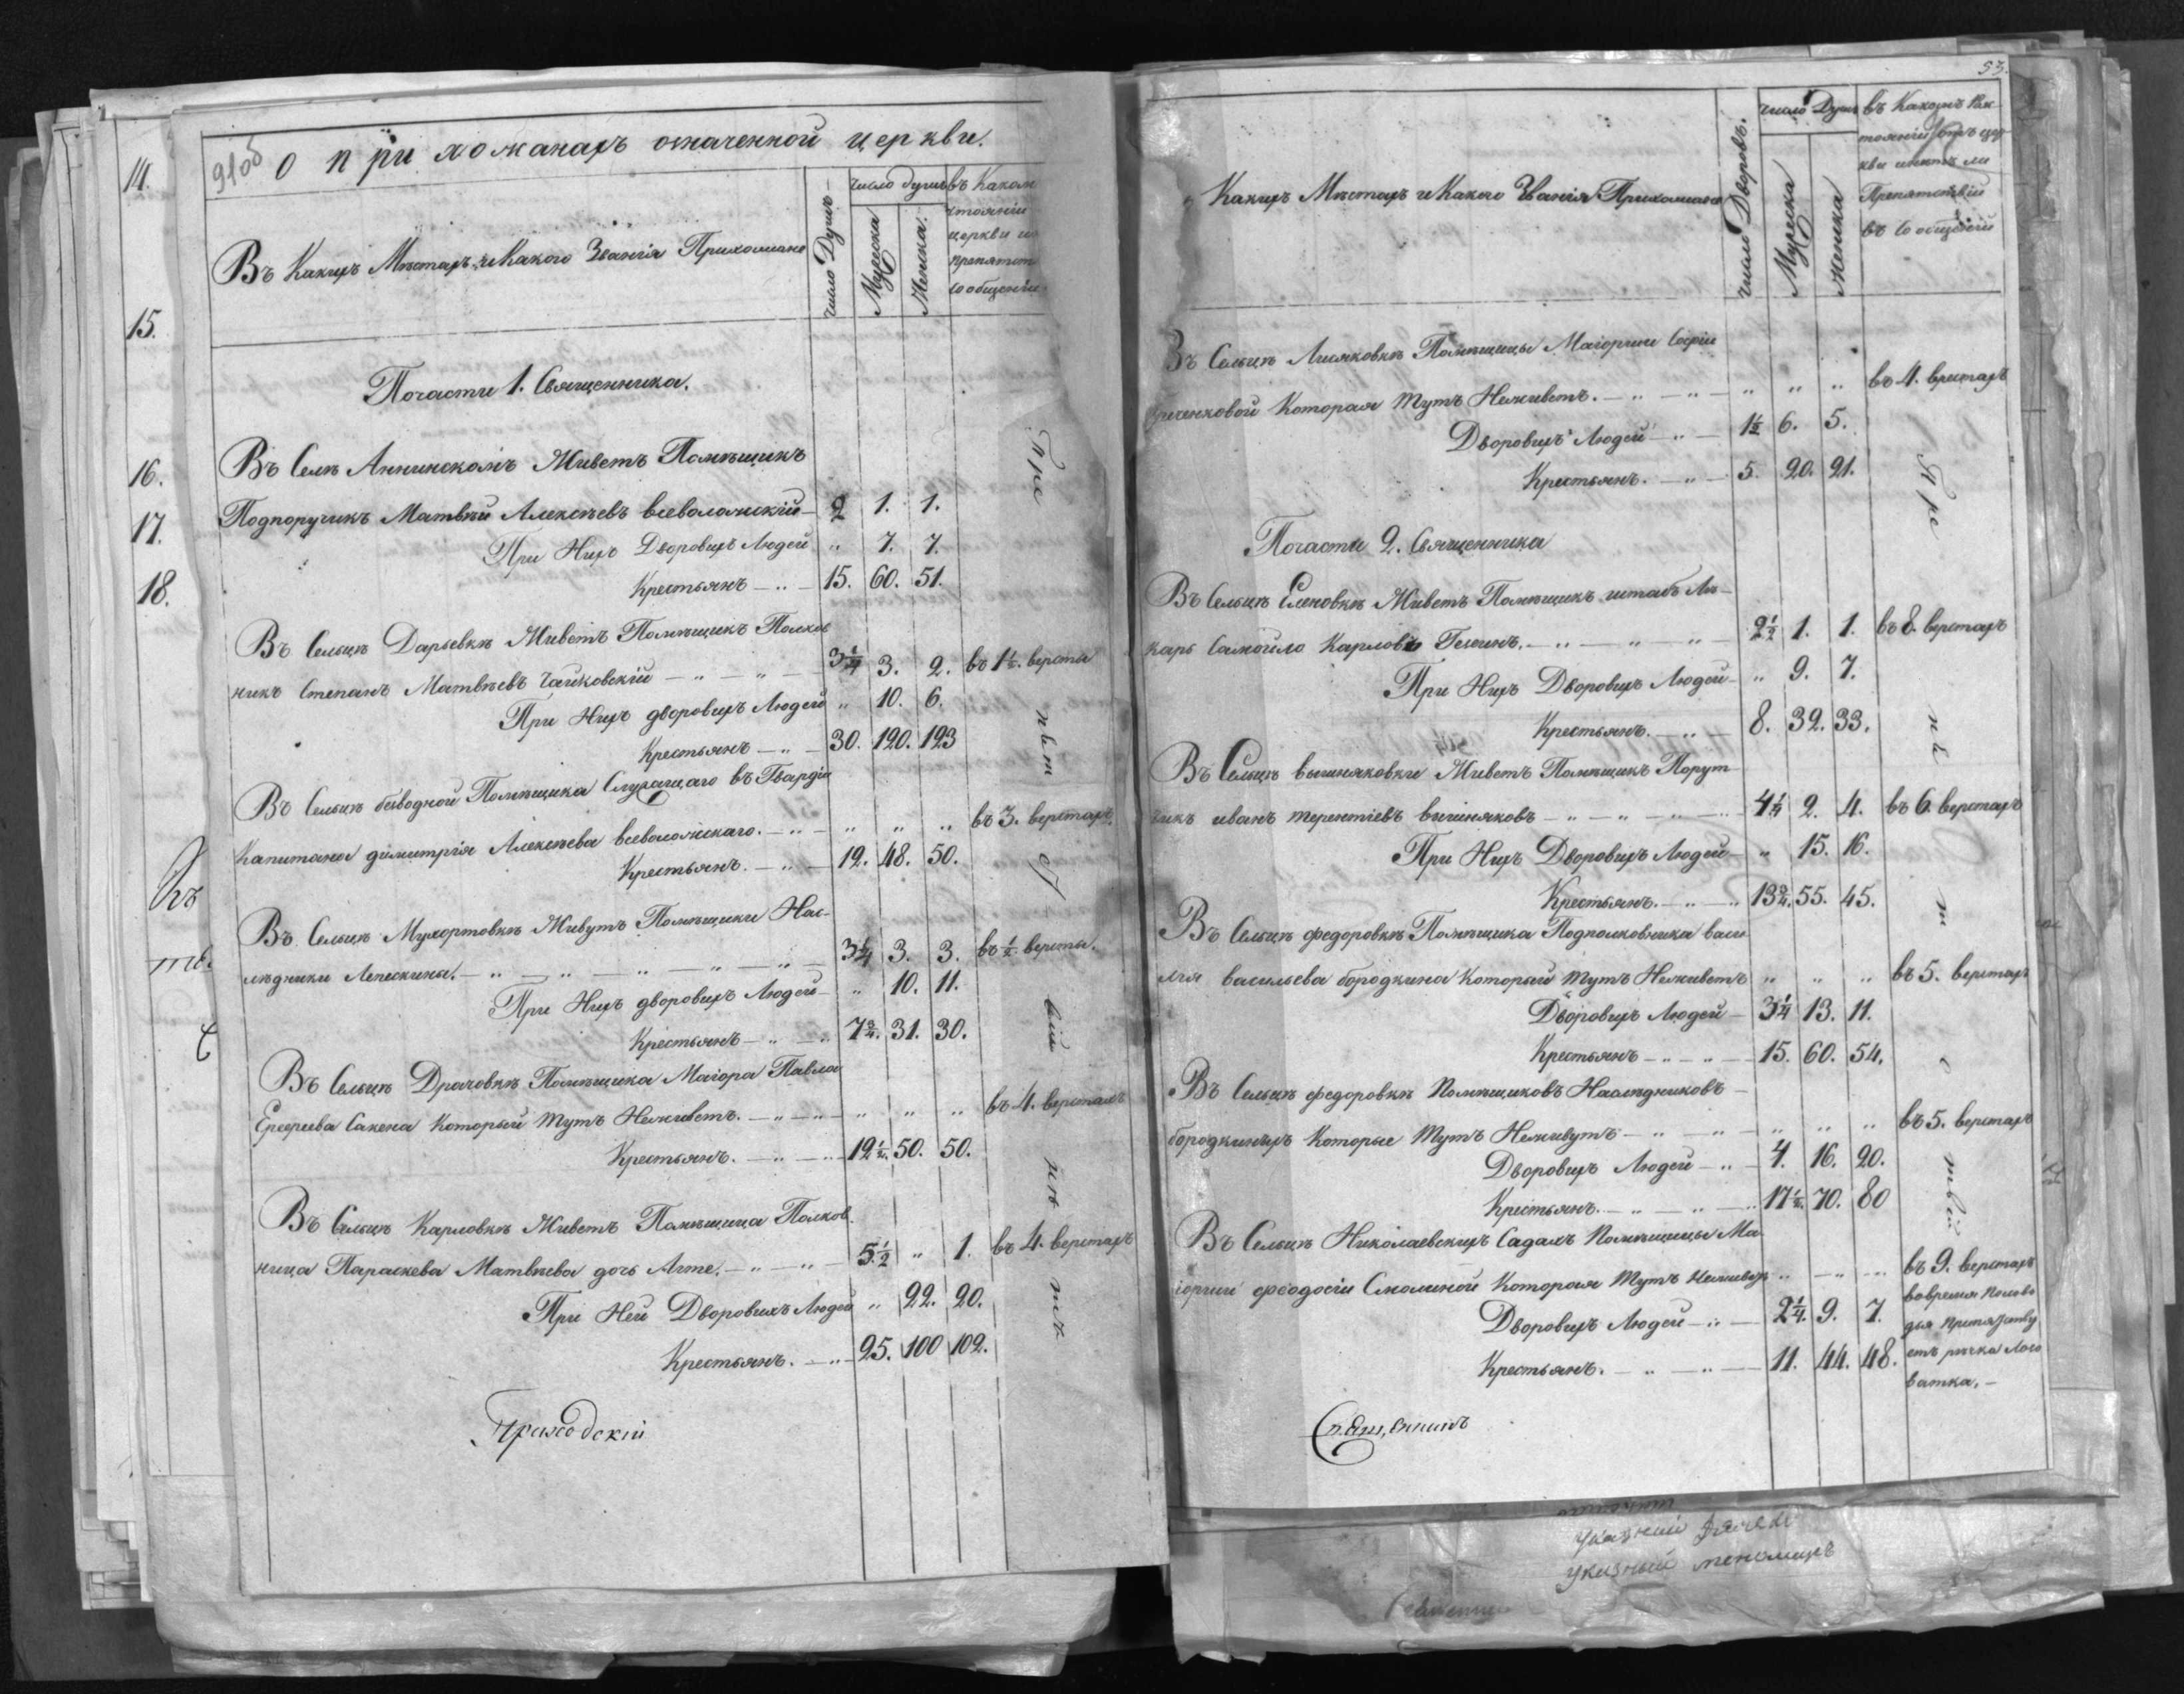 14.
15.
16.
17.
18.
910б
О прихожанахъ означенной церкви.
Въ Какихъ Мѣстахъ, и Какого Званія Прихожане
число Душъ
число душъ
Мужеска
Женска.
въ Каком
стояніи
церкви
препятст
сообщеніи
Почасти 1. Священника.
Въ Селѣ Аннинскомъ Живетъ Помѣщикъ
Подпоручикъ Матвѣй Алексѣевъ всеволожскій — 2 1. 1.
При Нихъ Дворовыхъ Людей „ 7. 7.
Крестьянъ — „ — 15. 60. 51.
Въ Сельцѣ Дарьевкѣ Живетъ Помѣщикъ Полков
никъ Степанъ Матвѣевъ Чайковскій — „ — „ — 3¼ 3. 2. въ 1½. верстѣ
При Нихъ дворовыхъ Людей „ 10. 6.
Крестьянъ — „ — 30. 120. 123
Въ Сельцѣ безводной Помѣщика Служащаго въ Гвардіи
Капитана димитрія Алексѣева всеволожскаго. — „ — „ „ „ въ 3. верстахъ.
Крестьянъ. — „ — 12. 48. 50.
Въ Сельцѣ Мухортовкѣ Живутъ Помѣщики Нас-
лѣдники Лепехины. — „ — „ — „ — „ — „ — 3¼ 3. 3. въ ½ версты.
При Нихъ дворовыхъ Людей — „ 10. 11.
Крестьянъ — „ — „ 7¾. 31. 30.
Въ Сельцѣ Драчовкѣ Помѣщика Маіора Павла
Ерофеева Сакена Который тутъ Неживетъ. — „ — „ — „ „ „ въ 4. верстахъ
Крестьянъ. — „ — „ 12½. 50. 50.
Въ Сельцѣ Карловкѣ Живетъ Помѣщица Полков-
ница Параскева Матвѣева дочь Агте. — „ — „ — 5½ „ 1. въ 4. верстахъ
При Ней Дворовыхъ Людей „ 22. 20.
Крестьянъ. — „ — 25. 100 102.
Пре
пят
ст
вій
нѣ
тъ
Приходскій
53.
Какихъ Мѣстахъ и Какого Званія Прихожане
число Дворовъ.
число Душъ
Мужеска
Женска
въ Какомъ Рас-
тояніи отъ цер
кви инѣтъ ли
Препятствій
въ Сообщеніи
Въ Сельцѣ Лисяковкѣ Помѣщицы Маіорши Софіи
Которая тутъ Неживетъ. — „ — „ — „ „ „ въ 4. верстахъ
Дворовыхъ Людей — „ — 1½ 6. 5.
Крестьянъ. — „ — 5. 20. 21.
Почасти 2. Священника
Въ Сельцѣ Еленовкѣ Живетъ Помѣщикъ штабъ Лѣ-
карь Самойло Карловъ — „ — „ — „ — 2½ 1. 1. въ 8. верстахъ
При Нихъ Дворовыхъ Людей — „ 9. 7.
Крестьянъ. — „ — 8. 32. 33.
Въ Сельцѣ вишняковки Живетъ Помѣщикъ Порут-
чикъ иванъ терентіевъ вишняковъ — „ — „ — „ — „ 4¼ 2. 4. въ 6. верстахъ
При Нихъ Дворовыхъ Людей — „ 15. 16.
Крестьянъ. — „ — „ 13¾. 55. 45.
Въ Сельцѣ федоровкѣ Помѣщика Подполковника васи
лья васильева бородкина Который тутъ Неживетъ „ „ „ въ 5. верстахъ
Дворовыхъ Людей — 3¼ 13. 11.
Крестьянъ — „ — „ — 15. 60. 54.
Въ Сельцѣ федоровкѣ Помѣщиковъ Наслѣдниковъ —
бородкиныхъ Которые тутъ Неживутъ — „ — „ — „ „ „ въ 5. верстахъ
Дворовыхъ Людей — „ — 4. 16. 20.
Крестьянъ. — „ — „ — „ 17½. 70. 80
Въ Сельцѣ Николаевскихъ Садахъ Помѣщицы Ма-
іорши феодосіи Смолиной Которая тутъ Неживетъ „ — „ — въ 9. верстахъ
Дворовыхъ Людей — „ — 2¼. 9. 7.
Крестьянъ. — „ — „ — 11. 44. 48.
вовремя полово
дья препятству
етъ речка Лозо
ватка. —
Пре
пя
т
с
твій
Священникъ
указный
указный пономарь